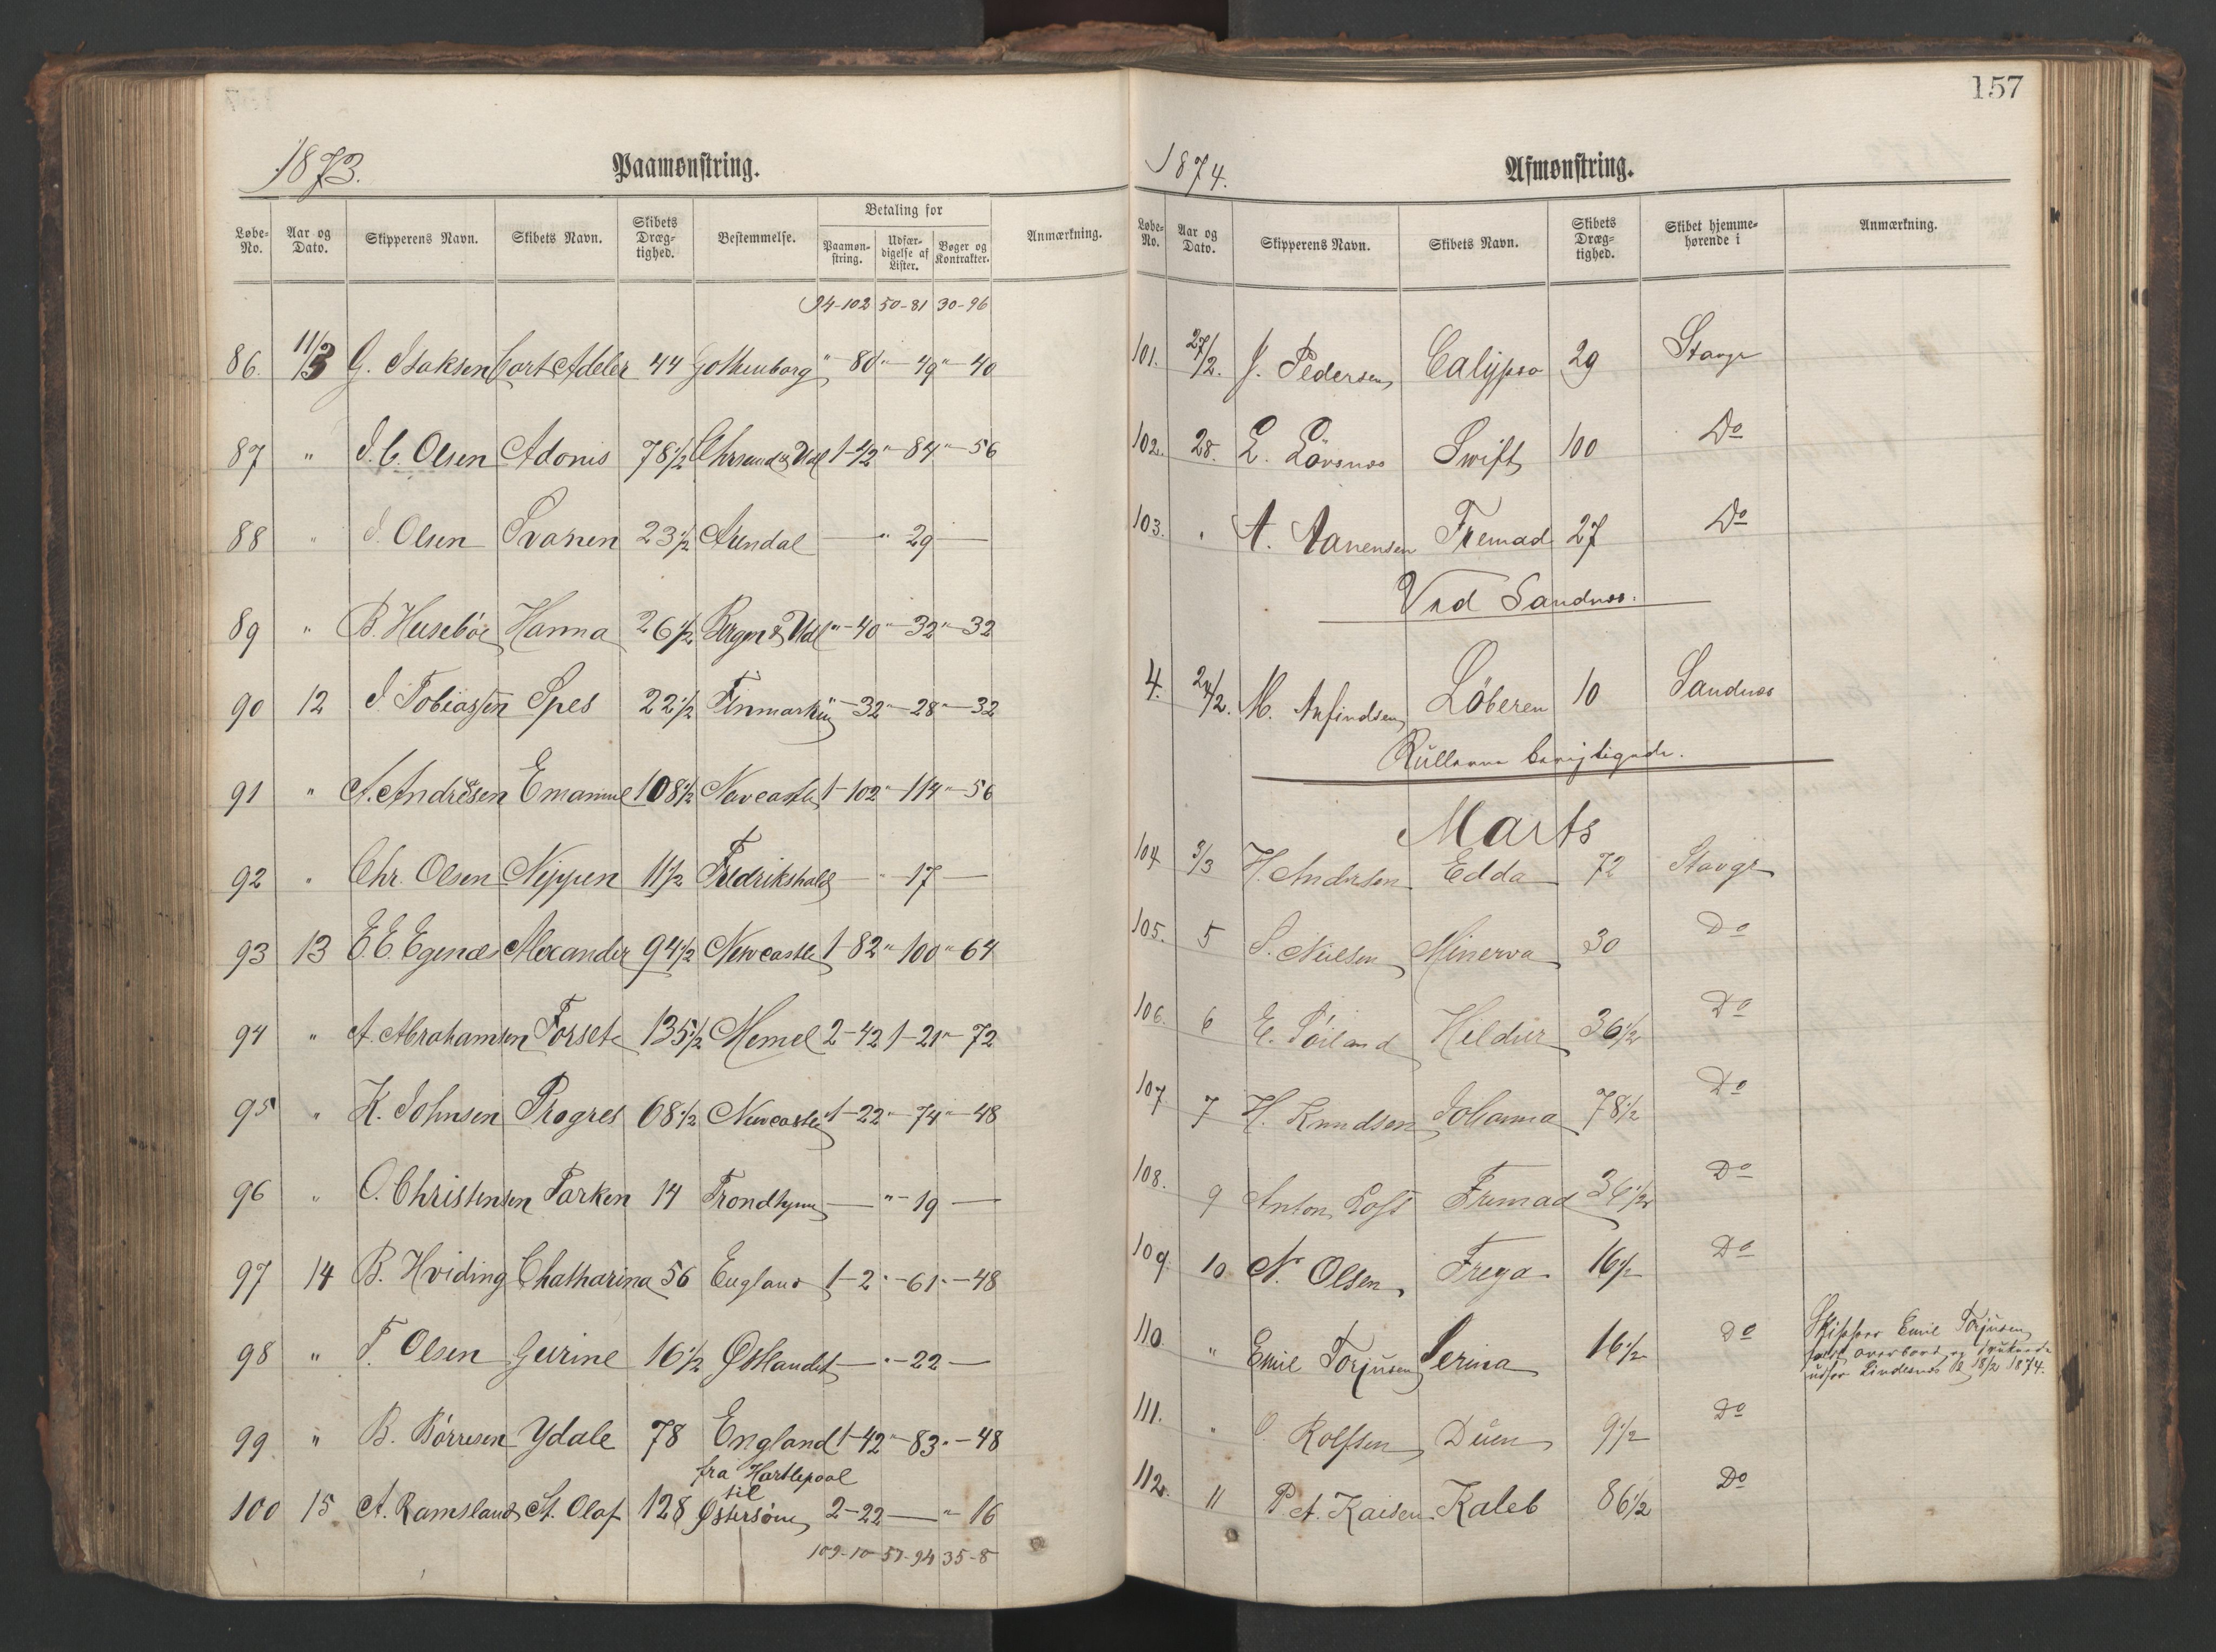 1873. Paamønstring.
Løbe-No. Aar og Dato. Skipperens Navn. Skibets Navn. Skibets Dræg-tighed. Bestemmelse. Betaling for Paamøn-string. Udfær-digelse af Lister. Bøger og Kontrakter. Anmærkning.
94-102 50-81 30-96
86. 11/3 G. Isaksen Cort Adeler 44 Gothenborg " 80 " 49 " 40
87 " J. C. Olsen Adonis 78 1/2 Chrsand & Udl 1-42 " 84 " 56
88 " J. Olsen Svanen 23 1/2 Arendal — " 29 —
89 " B. Husebøe Hanna 26 1/2 Bergen & Udl " 40 " 32 " 32
90 12 J. Tobiassen Spes 22 1/2 Finmarken " 32 " 28 " 32
91 " A. Andresen Emanuel 108 1/2 Newcastle 1-102 " 114 " 56
92 " Chr. Olsen Nippen 11 1/2 Fredrikshald — " 17 —
93 13 E. E. Egenæs Alexander 94 1/2 Newcastle 1-82 " 100 " 64
94 " A. Abrahamsen Forsete 135 1/2 Memel 2-42 1-21 " 72
95 " K. Johnsen Progres 68 1/2 Newcastle 1-22 " 74 " 48
96 " O. Christensen Parken 14 Trondhjem — " 19 —
97 14 B. Hviding Chatharina 56 England 1-2 " 61 " 48
98 " T. Olsen Gurine 16 1/2 Østlandet — " 22 —
99 " B. Børresen Ydale 78 England 1-42 " 83 " 48
100 15 A. Ramsland St. Olaf 128 fra Hartlepool til Østersøen 2-22 — " 16
109-10 57-94 35-8
157
1874. Afmønstring.
Løbe-No. Aar og Dato. Skipperens Navn. Skibets Navn. Skibets Dræg-tighed. Skibet hjemme-hørende i Anmærkning.
101. 27/2. J. Pedersen Calypso 29 Stavgr
102. 28. L. Lövsnæs Swift 100 Do
103. " A. Aanensen Fremad 27 Do
Ved Sandnæs:
4. 24/2. M. Anfindsen Löberen 10 Sandnæs
Rullerne berigtigede.
Marts
104 3/3 H. Andersen Edda 72 Stavgr
105. 5 S. Nielsen Minerva 30 Do
106. 6 E. Töiland Hildur 36 1/2 Do
107. 7 H. Knudsen Johanna 78 1/2 Do
108. 9 Anton Loft Fremad 36 1/2 Do
109. 10 N. Olsen Freya 16 1/2 Do
110. " Emil Torjusen Serina 16 1/2 Do Skipper Emil Torjusen
faldt overbord og druknede
udfor Lindesnæs d. 18/2 1874.
111. " O. Rolfsen Duen 9 1/2 Do
112. 11 P. A. Kaisen Kaleb 86 1/2 Do